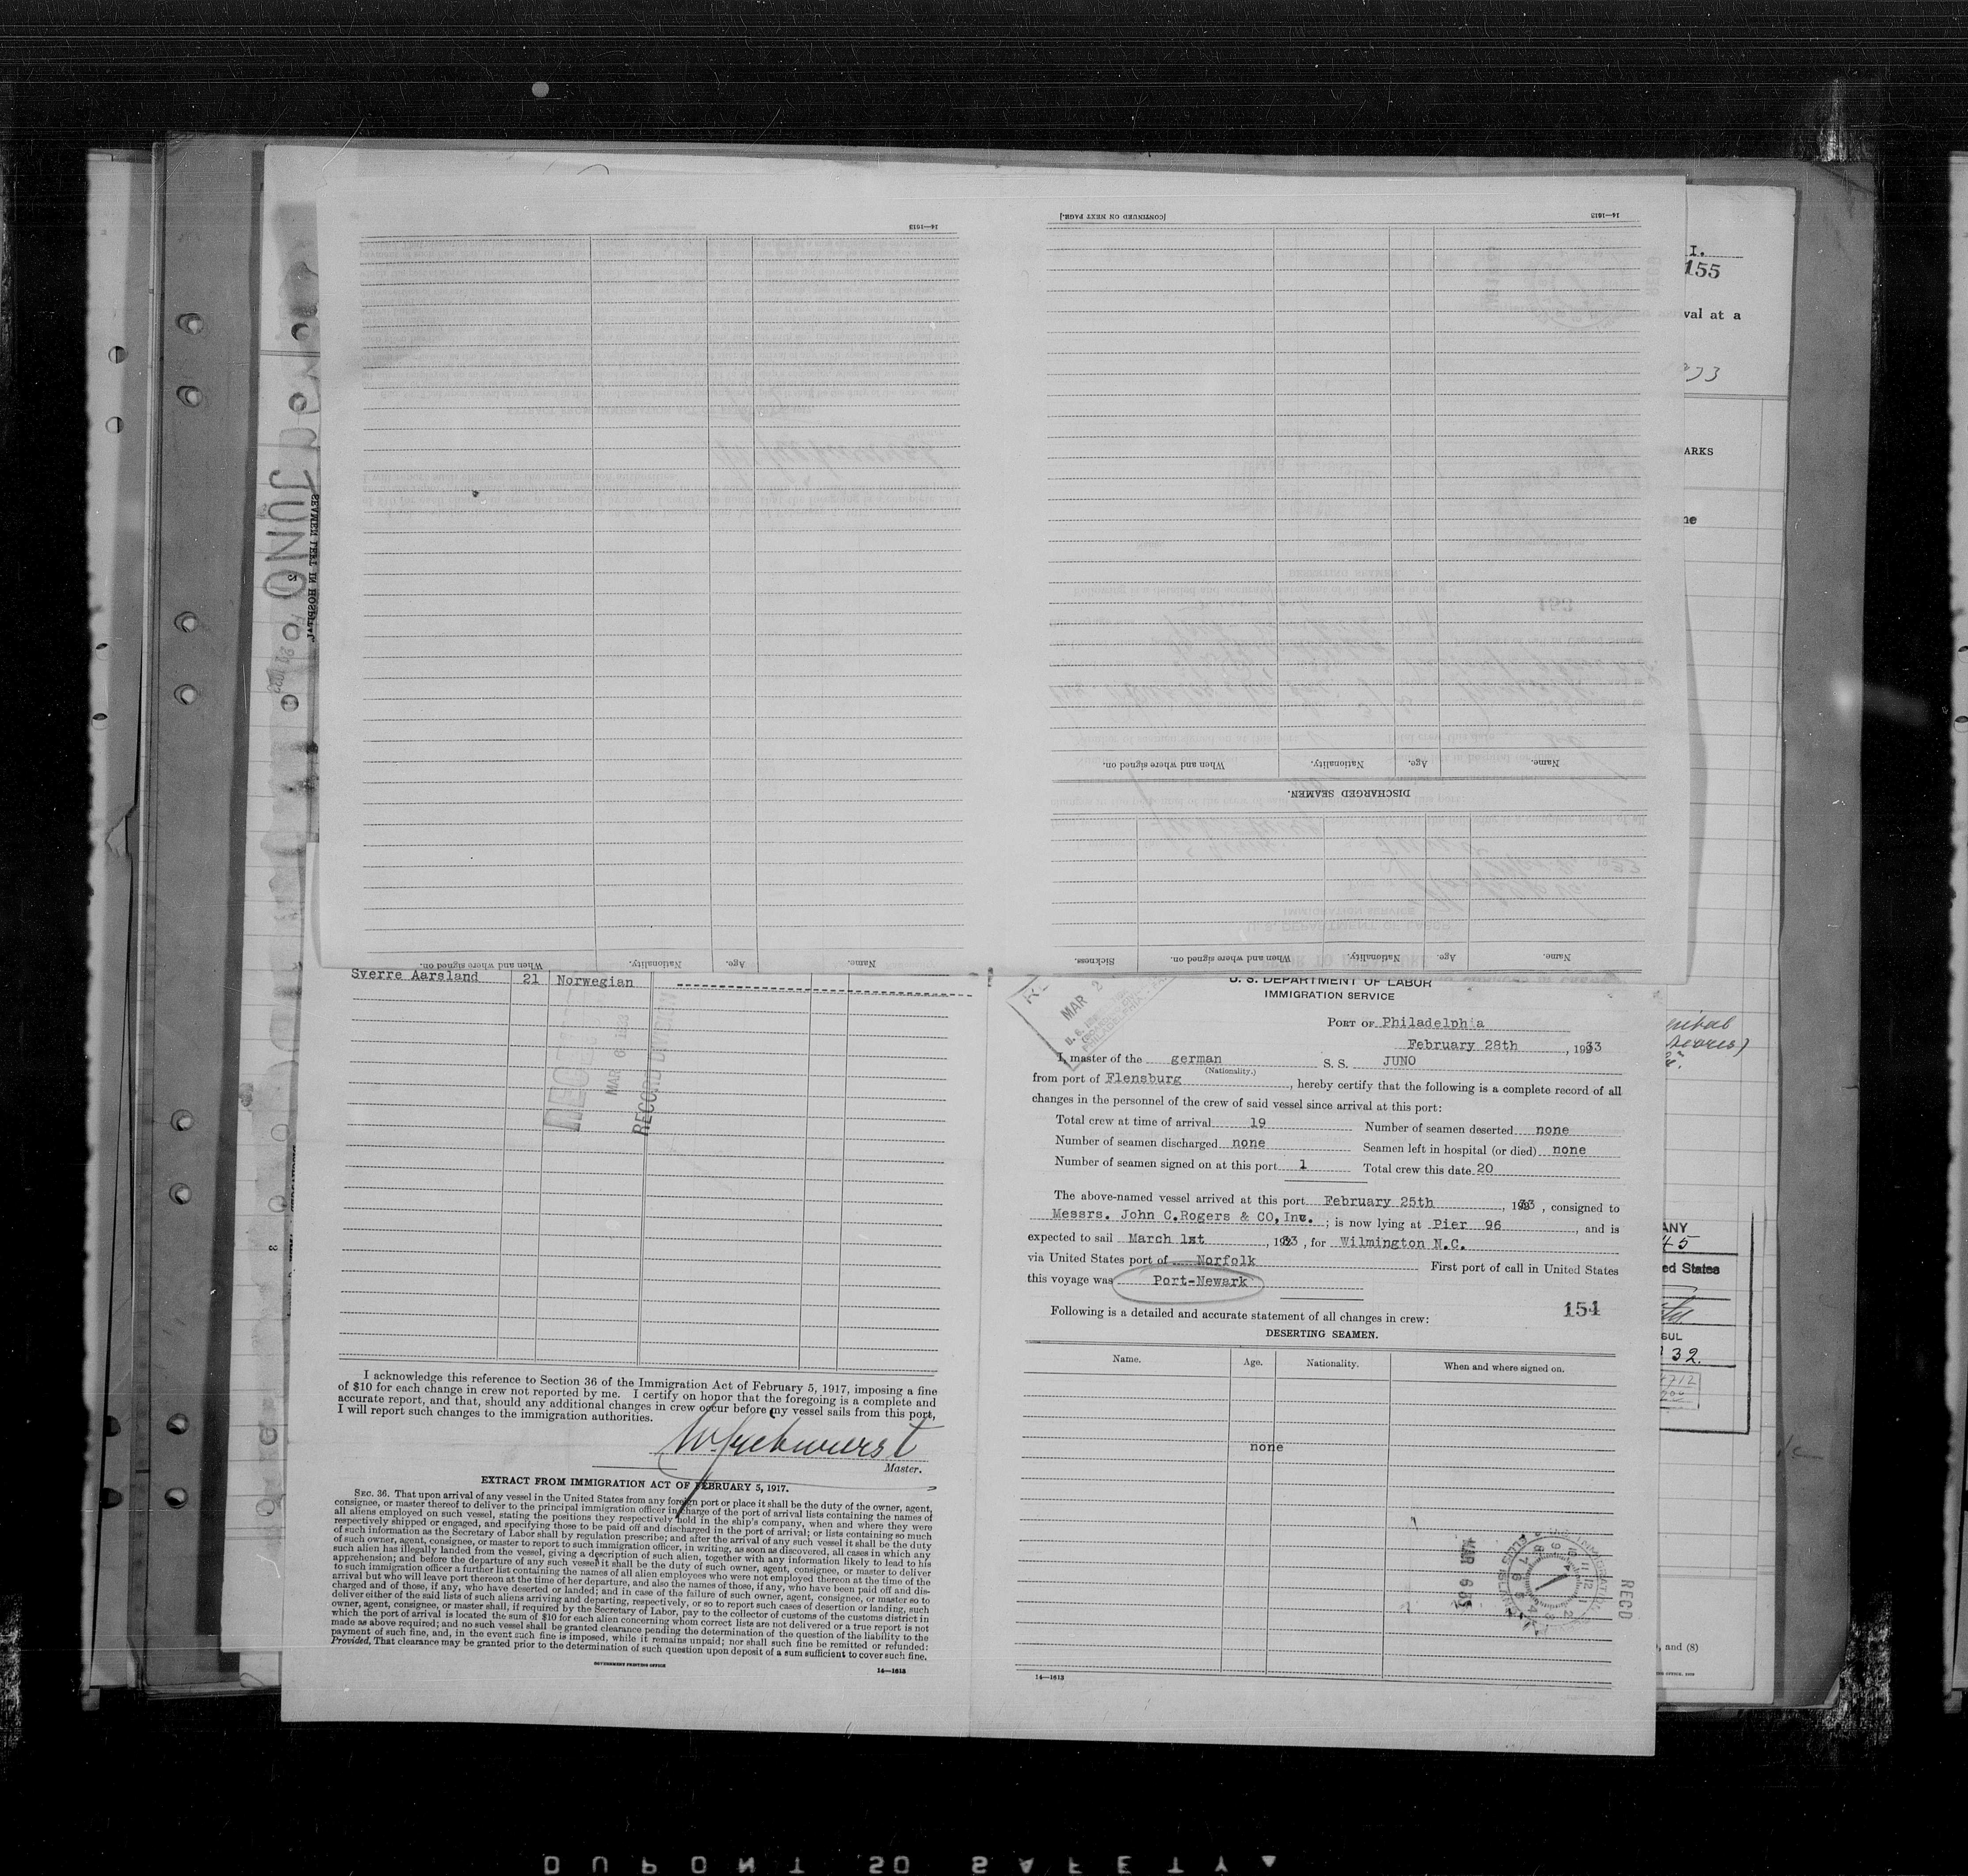 14—1613
[CONTINUED ON NEXT PAGE.]
14—1613
I.
155
val at a
ARKS
JUNO
SEAMEN LEFT IN HOSPITAL.
Name. Age. Nationality. When and where signed on.
DISCHARGED SEAMEN.
Name. Age. Nationality. When and where signed on. Sickness.
Name. Age. Nationality. When and where signed on.
Sverre Aarsland 21 Norwegian
MAR 6 1933
RECORD DIVISION
I acknowledge this reference to Section 36 of the Immigration Act of February 5, 1917, imposing a fine
of $10 for each change in crew not reported by me. I certify on honor that the foregoing is a complete and
accurate report, and that, should any additional changes in crew occur before my vessel sails from this port,
I will report such changes to the immigration authorities.
Master.
EXTRACT FROM IMMIGRATION ACT OF FEBRUARY 5, 1917.
SEC. 36. That upon arrival of any vessel in the United States from any foreign port or place it shall be the duty of the owner, agent,
consignee, or master thereof to deliver to the principal immigration officer in charge of the port of arrival lists containing the names of
all aliens employed on such vessel, stating the positions they respectively hold in the ship's company, when and where they were
respectively shipped or engaged, and specifying those to be paid off and discharged in the port of arrival; or lists containing so much
of such information as the Secretary of Labor shall by regulation prescribe; and after the arrival of any such vessel it shall be the duty
of such owner, agent, consignee, or master to report to such immigration officer, in writing, as soon as discovered, all cases in which any
such alien has illegally landed from the vessel, giving a description of such alien, together with any information likely to lead to his
apprehension; and before the departure of any such vessel it shall be the duty of such owner, agent, consignee, or master to deliver
to such immigration officer a further list containing the names of all alien employees who were not employed thereon at the time of the
arrival but who will leave port thereon at the time of her departure, and also the names of those, if any, who have been paid off and dis-
charged and of those, if any, who have deserted or landed; and in case of the failure of such owner, agent, consignee, or master so to
deliver either of the said lists of such aliens arriving and departing, respectively, or so to report such cases of desertion or landing, such
owner, agent, consignee, or master shall, if required by the Secretary of Labor, pay to the collector of customs of the customs district in
which the port of arrival is located the sum of $10 for each alien concerning whom correct lists are not delivered or a true report is not
made as above required; and no such vessel shall be granted clearance pending the determination of the question of the liability to the
payment of such fine, and, in the event such fine is imposed, while it remains unpaid; nor shall such fine be remitted or refunded:
Provided, That clearance may be granted prior to the determination of such question upon deposit of a sum sufficient to cover such fine.
GOVERNMENT PRINTING OFFICE 14—1613
MAR 2
U. S. DEPARTMENT OF LABOR
IMMIGRATION SERVICE
PORT OF Philadelphia
February 28th, 1933
I, master of the german S. S. JUNO
(Nationality.)
from port of Flensburg, hereby certify that the following is a complete record of all
changes in the personnel of the crew of said vessel since arrival at this port:
Total crew at time of arrival 19 Number of seamen deserted none
Number of seamen discharged none Seamen left in hospital (or died) none
Number of seamen signed on at this port 1 Total crew this date 20
The above-named vessel arrived at this port February 25th, 1933, consigned to
Messrs. John C.Rogers & CO, Inc.; is now lying at Pier 96, and is
expected to sail March 1st, 1933, for Wilmington N.C.
via United States port of Norfolk First port of call in United States
this voyage was Port-Newark
154
Following is a detailed and accurate statement of all changes in crew:
DESERTING SEAMEN.
Name. Age. Nationality. When and where signed on.
none
MAR 6
RECD
14—1613
ANY
45
ed States
SUL
32.
, and (8)
DUPONT SAFETY